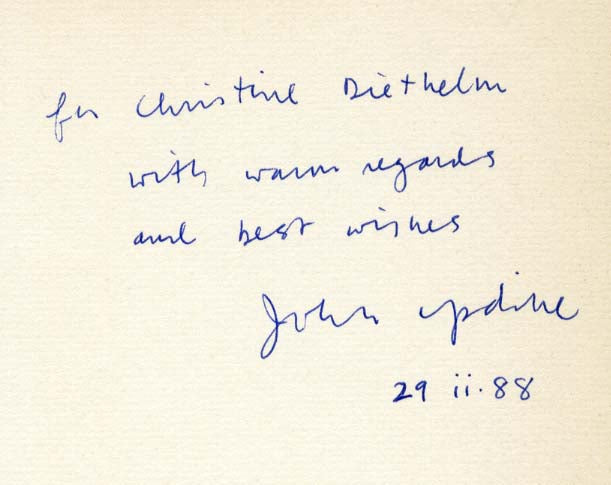 for Christine Diethelm
with warm regards
and best wishes
John Updike
29 ii. 88